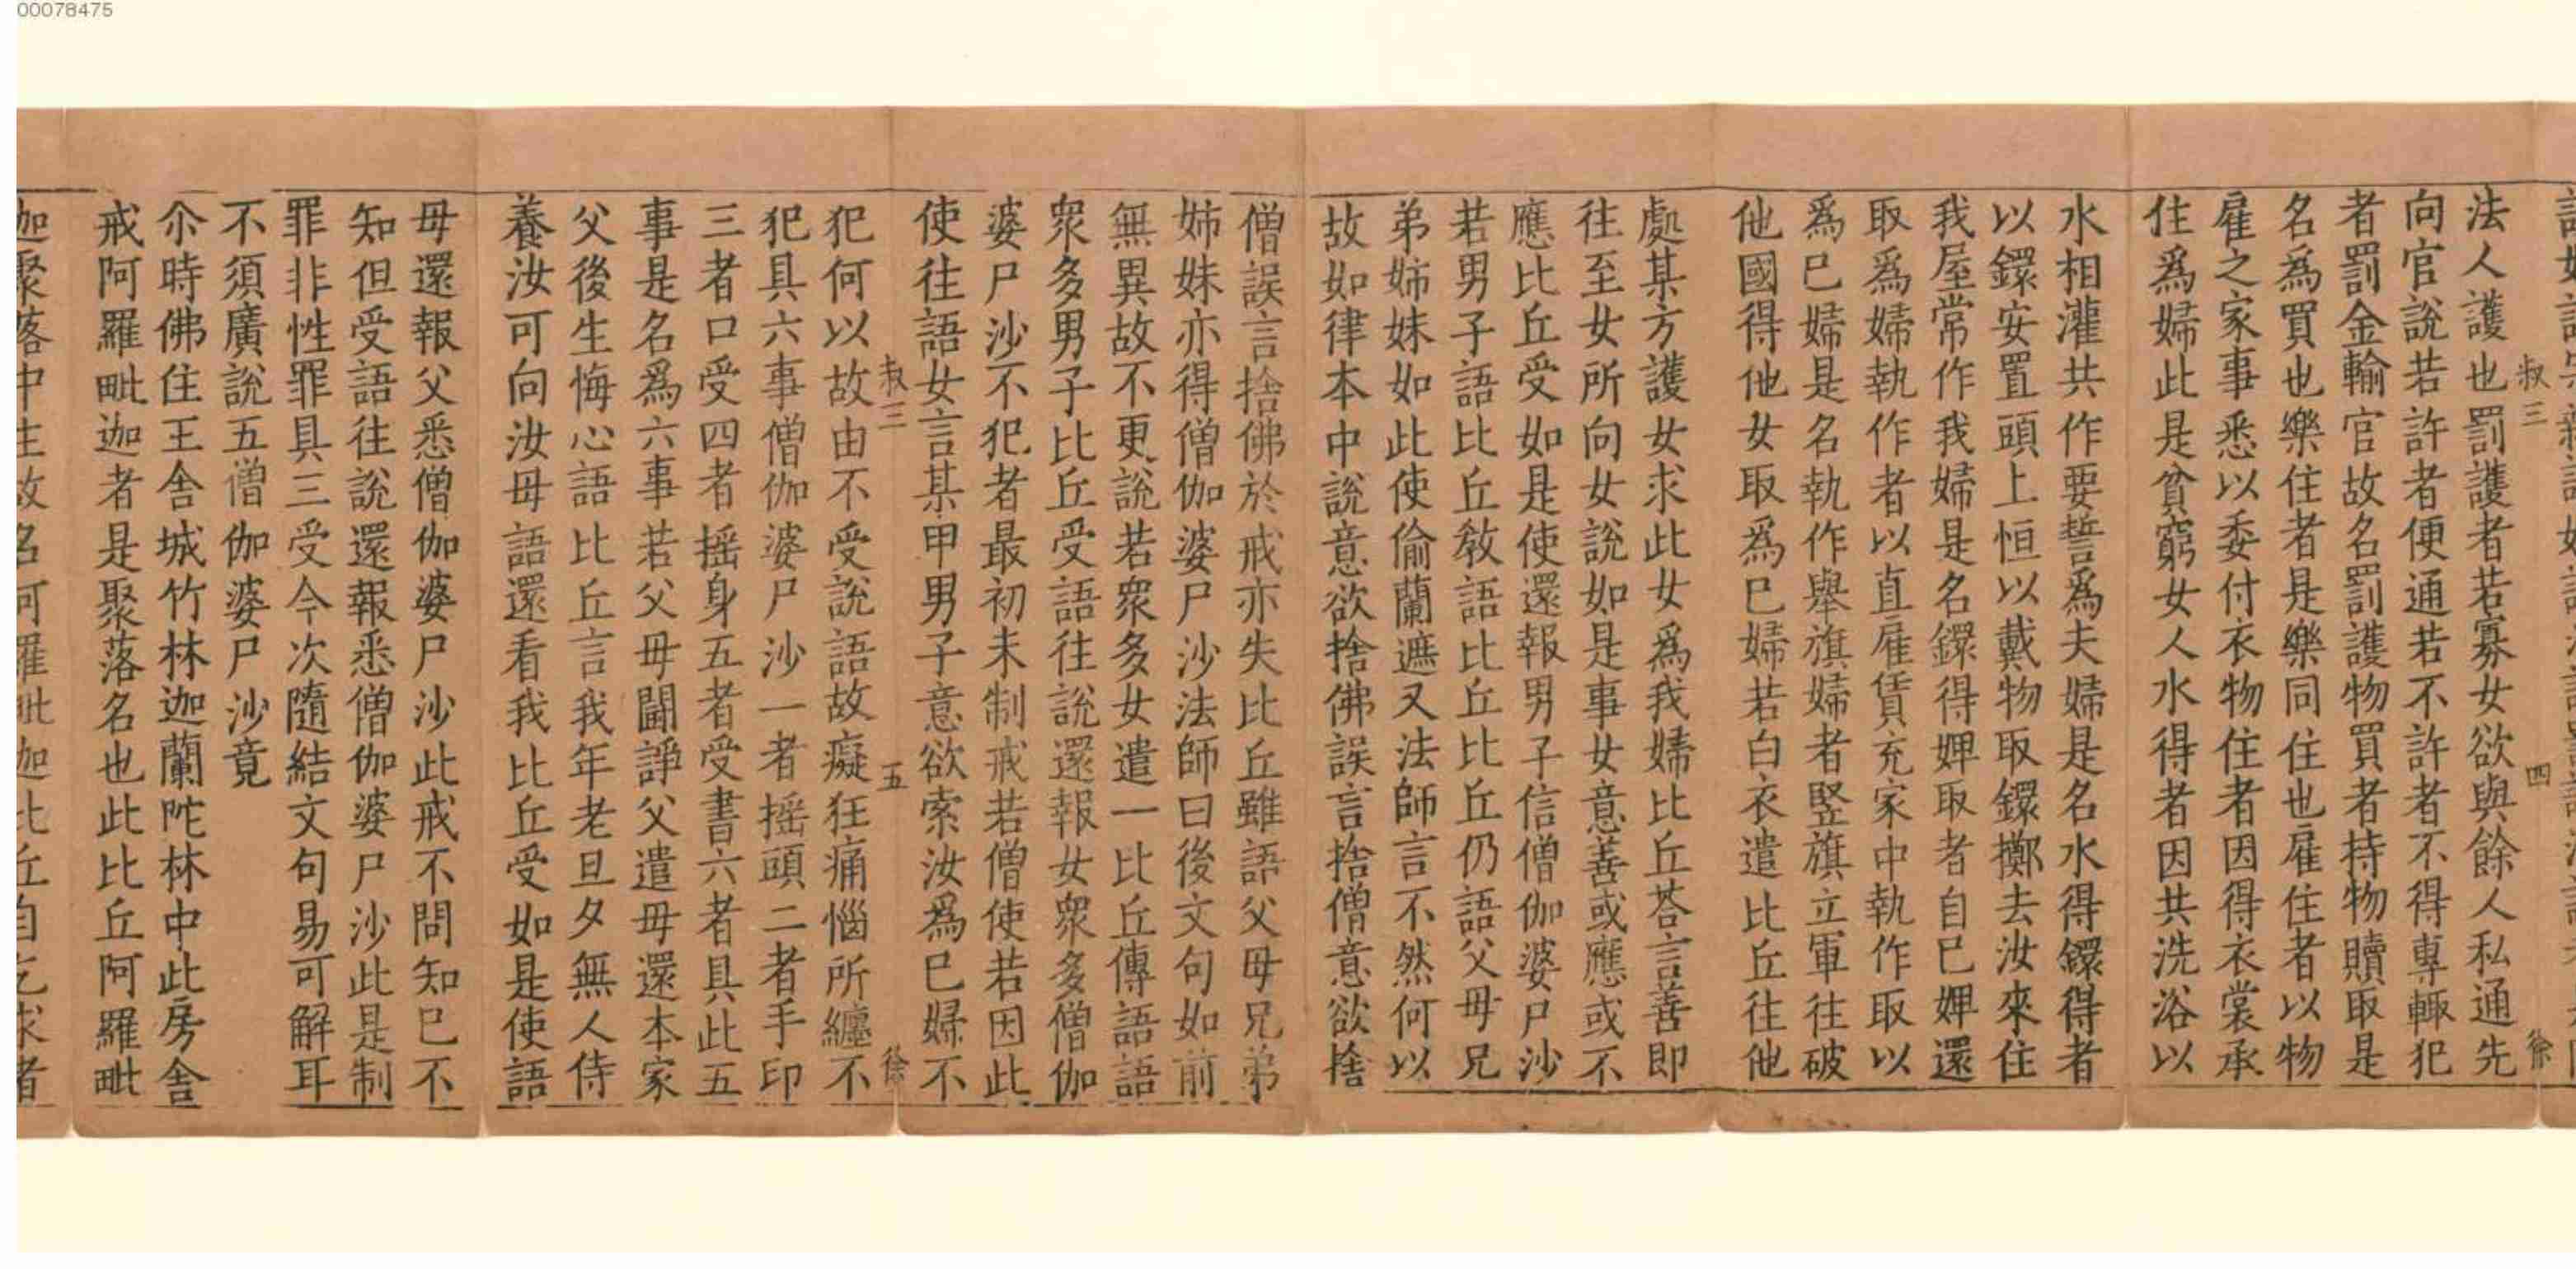 00078475
法人護也罰護者若寡女欲與餘人私通先
向官說若許者便通若不許者不得專輒犯
者罰金輸官故名罰護物買者持物贖取是
名為買也樂住者是樂同住也雇住者以物
雇之家事悉以委付衣物住者因得衣裳承
住為婦此是貧窮女人水得者因共洗浴以
水相灌共作要誓為夫婦是名水得鐶得者
以鐶安置頭上恒以戴物取鐶擲去汝來住
我屋常作我婦是名鐶得婢取者自己婢還
取為婦執作者以直雇賃充家中執作取以
為己婦是名執作舉旗婦者竪旗立軍往破
他國得他女取為已婦若白衣遣比丘往他
處某方護女求此女為我婦比丘荅言善即
往至女所向女說如是事女意善或應或不
應比丘受如是使還報男子信僧伽婆尸沙
若男子語比丘教語比丘比丘仍語父母兄
弟姉妹如此使偷蘭遮又法師言不然何以
故如律本中說意欲捨佛誤言捨僧意欲捨
僧誤言捨佛於戒亦失比丘雖語父母兄弟
姉妹亦得僧伽婆尸沙法師曰後文句如前
無異故不更說若衆多女遣一比丘傳語語
衆多男子比丘受語往說還報女衆多僧伽
婆尸沙不犯者最初未制戒若僧使若因此
使往語女言某甲男子意欲索汝為已婦不
犯何以故由不受說語故癡狂痛惱所纏不
犯具六事僧伽婆尸沙一者搖頭二者手印
三者口受四者搖身五者受書六者具此五
事是名為六事若父母鬪諍父遣母還本家
父後生悔心語比丘言我年老旦夕無人侍
養汝可向汝母語還看我比丘受如是使語
母還報父悉僧伽婆尸沙此戒不問知已不
知但受語往說還報悉僧伽婆尸沙此是制
罪非性罪具三受今次隨結文句易可解耳
不須廣說五僧伽婆尸沙竟
尒時佛住王舍城竹林迦蘭陀林中此房舍
戒阿羅毗迦者是聚落名也此比丘阿羅毗
迦聚落中生故名阿羅毗迦比丘自乞求者
叔三 四 徐
叔三 五 徐